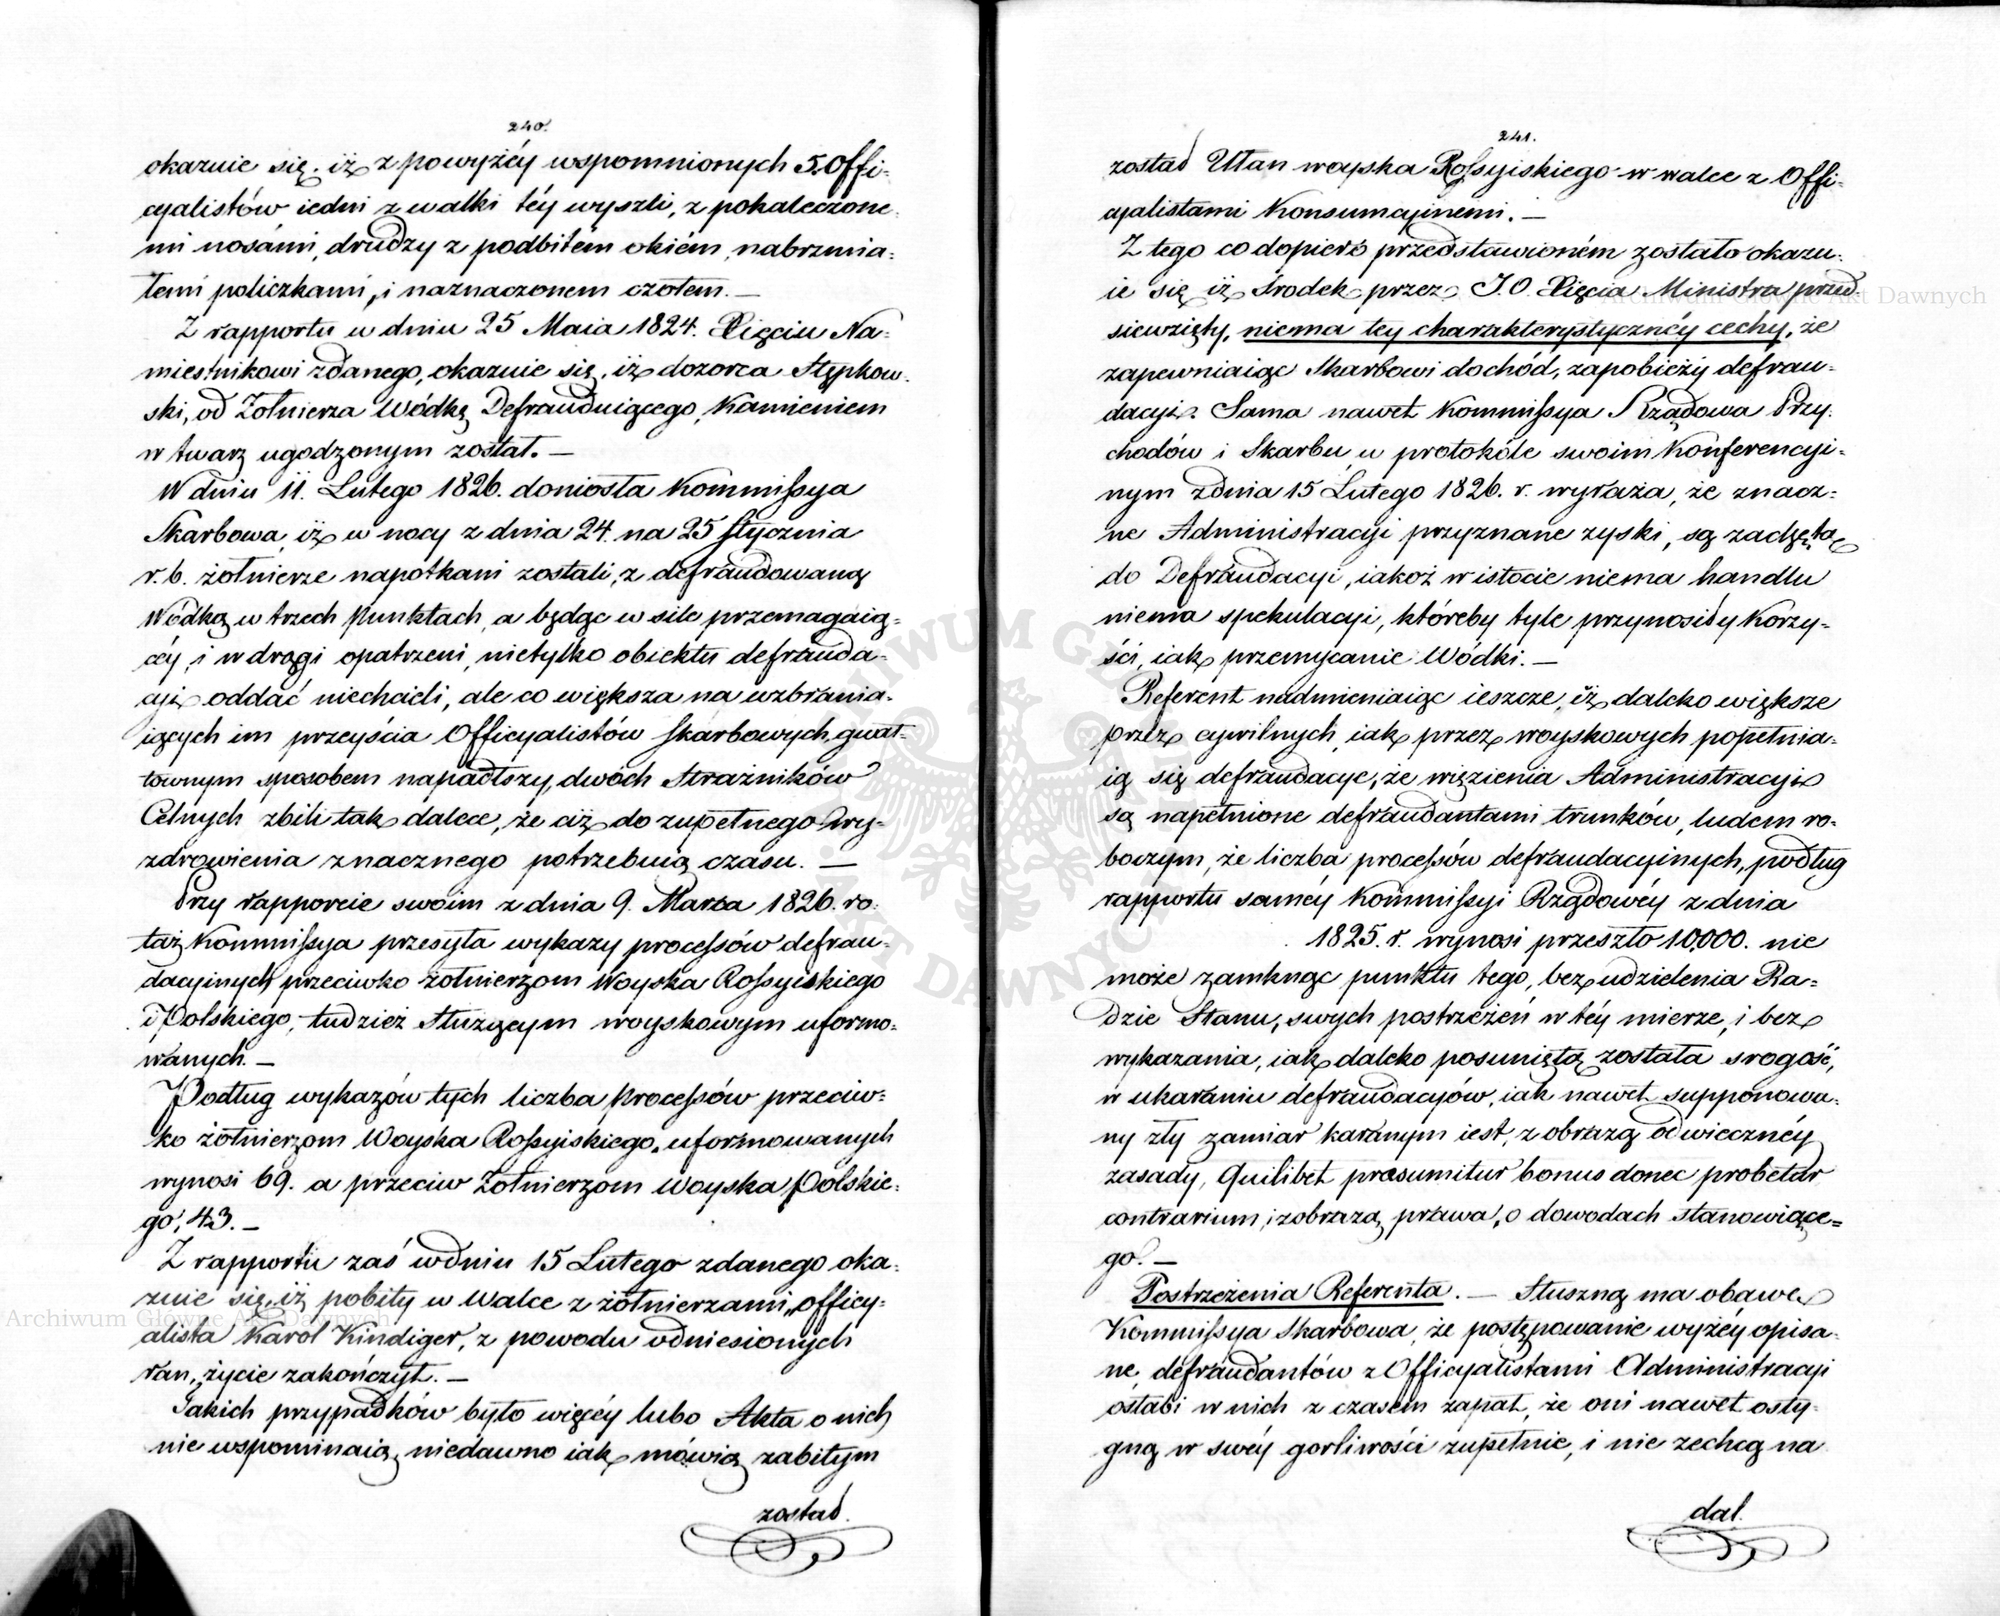 240.
okazuie się, iż z powyżéy wspomnionych 5. Offi-
cyalistów iedni z walki téy wyszli, z pokaleczone-
mi nosámi, drudzy z podbitém okiém, nabrzmia-
łemi policzkami, i naznaczonem czołem. —
Z rapportu w dniu 25 Maia 1824. Xięciu Na-
miestnikowi zdanego, okazuie się, iż dozorca Stępkow-
ski, od Żołnierza Wódkę Defrauduiącego, Kamieniem
w twarz ugodzonym został. —
W dniu 11. Lutego 1826. doniosła Kommissya
Skarbowa, iż w nocy z dnia 24. na 25 Stycznia
r. b. żołnierze napotkani zostali, z defraudowaną
Wódką w trzech Punktach, a będąc w sile przemagaią-
céy, i w drągi opatrzeni, nietylko obiektu defrauda-
cyi oddać niechcieli, ale co większa na wzbrania-
iących im przeyścia Officyalistów Skarbowych, gwał-
townym sposobem napadłszy, dwóch Strażników
Celnych zbili tak dalece, że ciż do zupełnego wy-
zdrowienia znacznego potrzebuią czasu. —
Przy rapporcie swoim z dnia 9. Marca 1826. ro-
taż Kommissya przesyła wykazy processów defrau-
dacyinych przeciwko żołnierzom Woyska Rossyiskiego
i Polskiego, tudzież Służącym woyskowym uformo-
wanych. —
Podług wykazów tych liczba Processów przeciw-
ko żołnierzom Woyska Rossyiskiego, uformowanych
wynosi 69. a przeciw Żołnierzom Woyska Polskie-
go, 43. —
Z rapportu zaś w dniu 15 Lutego zdanego oka-
zuie się, iż pobity w Walce z żołnierzami, officy-
alista Karol Kindiger, z powodu odniesionych
ran, życie zakończył. —
Takich przypadków było więcéy lubo Akta o nich
nie wspominaią, niedawno iak mówią zabitym
został.
241.
został Ułan woyska Rossyiskiego w walce z Offi-
cyalistami Konsumcyinemi. —
Z tego co dopiero przedstawioném zostało okazu-
ie się iż Środek przez J. O. Xięcia Ministra przed-
siewzięty, niema tey charakterystycznéy cechy, że
zapewniaiąc Skarbowi dochód, zapobieży defrau-
dacyi. Sama nawet Kommissya Rządowa Przy-
chodów i Skarbu w protokóle swoim Konferencyi-
nym z dnia 15 Lutego 1826. r. wyraża, że znacz-
ne Administracyi przyznane zyski, są zachętą
do Defraudacyi, iakoż w istocie niema handlu
niema spekulacyi, któreby tyle przynosiły Korzy-
ści, iak przemycanie Wódki. —
Referent nadmieniaiąc ieszcze, iż daleko większe
przez cywilnych, iak przez woyskowych popełnia-
ią się defraudacye, że więzienia Administracyi
są napełnione defraudantami trunków, ludem ro-
boczym, że liczba processów defraudacyinych, podług
rapportu saméy Kommissyi Rządowéy z dnia
1825. r. wynosi przeszło 10,000. nie
może zamknąć punktu tego, bez udzielenia Ra-
dzie Stanu, swych postrzeżeń w téy mierze, i bez
wykazania, iak daleko posuniętą została srogość,
w ukaraniu defraudacyów, iak nawet supponowa-
ny zły zamiar karanym iest, z obrazą odwiecznéy
zasady, Quilibet praesumitur bonus donec probetur
contrarium, i z obrazą prawa, o dowodach stanowiące-
go. —
Postrzeżenia Referenta. — Słuszną ma obawę
Kommissya Skarbowa, że postępowanie wyżéy opisa-
ne, defraudantów z Officyalistami Administracyi
osłabi w nich z czasem zapał, że oni nawet osty-
gną w swéy gorliwości zupełnie, i nie zechcą na
dal.
Archiwum Główne Akt Dawnych
Archiwum Główne Akt Dawnych
ARCHIWUM GŁÓWNE AKT DAWNYCH